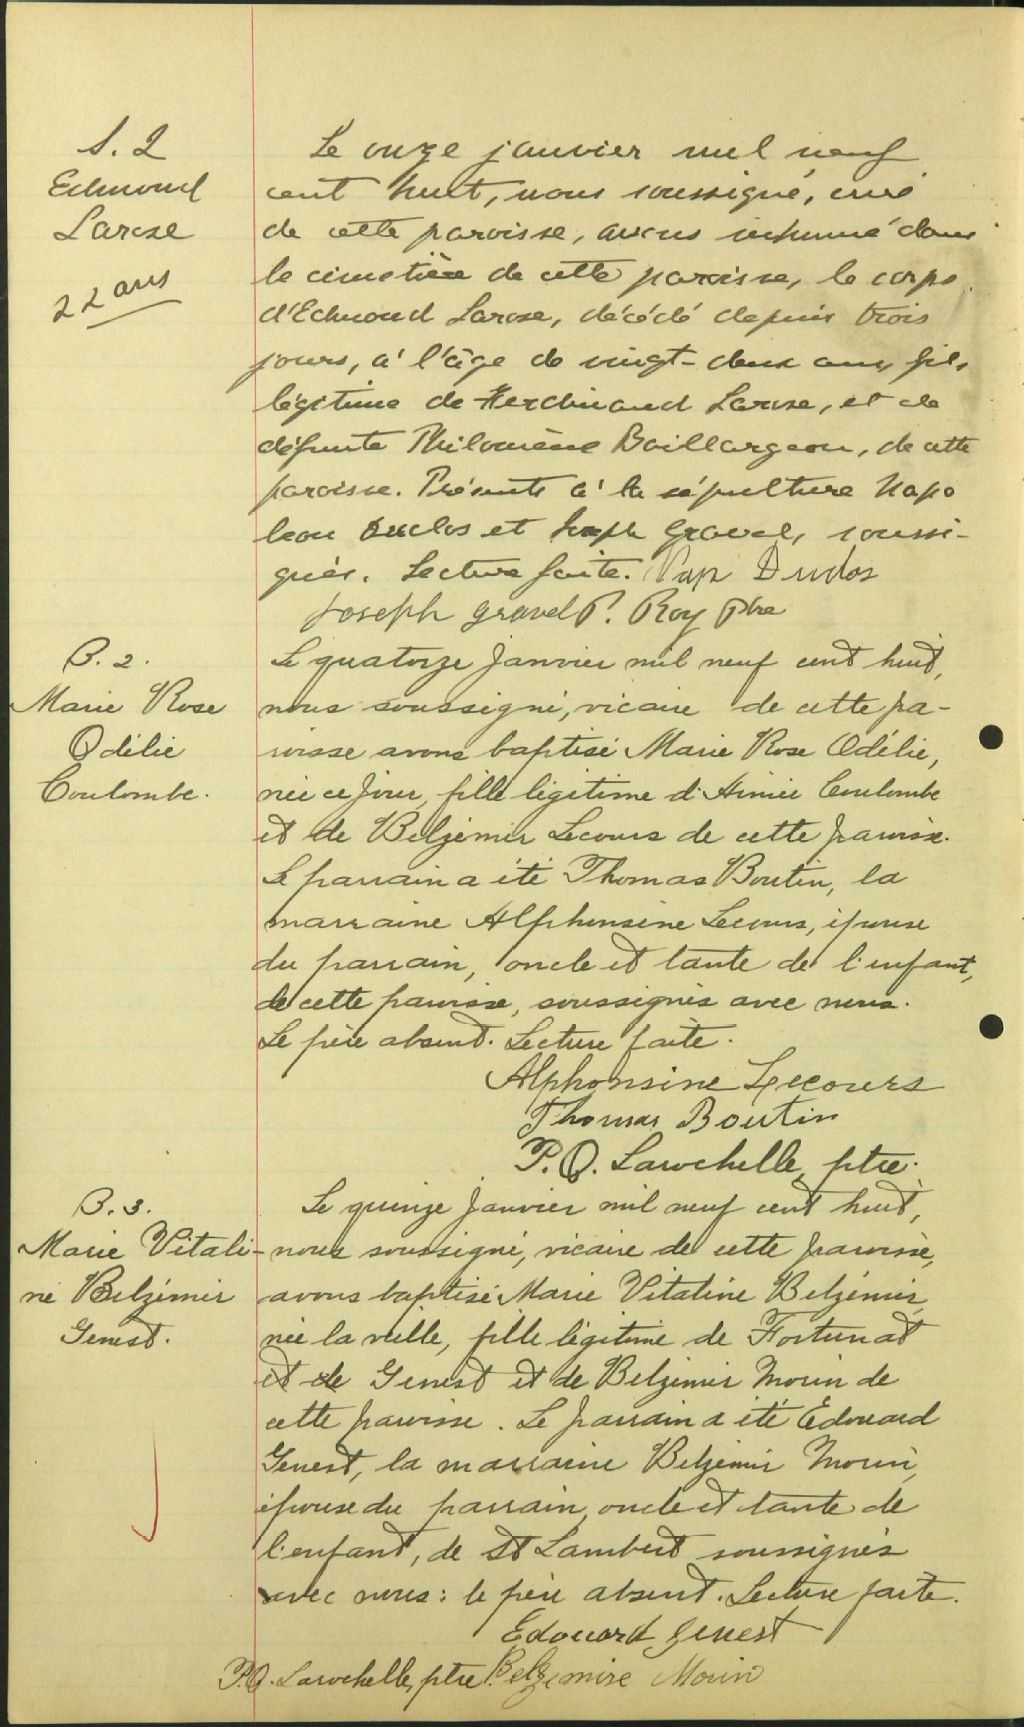 S. 2
Edmond
Larose
22 ans
Le onze janvier mil neuf
cent huit, nous soussigné, curé
de cette paroisse, avons inhumé dans
le cimetière de cette paroisse, le corps
d'Edmond Larose, décédé depuis trois
jours, à l'âge de vingt-deux ans, fils
légitime de Ferdinand Larose, et de
défunte Philomène Baillargeon, de cette
paroisse. Présents à la sépulture Napo
leon Duclos et Joseph Gravel, soussi-
gnés. Lecture faite. Nap Duclos
Joseph Gravel P. Roy Ptre
B. 2.
Marie Rose
Odélie
Coulombe.
Le quatorze Janvier mil neuf cent huit,
nous soussigné, vicaire de cette pa-
roisse avons baptisé Marie Rose Odélie,
née ce jour, fille légitime d'Aimée Coulombe
et de Belzémir Lecours de cette paroisse.
Le parrain a été Thomas Boutin, la
marraine Alphonsine Lecours, épouse
du parrain, oncle et tante de l'enfant,
de cette paroisse, soussignés avec nous.
Le père absent. Lecture faite.
Alphonsine Lecours
Thomas Boutin
P.O. Larochelle, ptre.
B. 3.
Marie Vitali-
ne Belzémir
Genest.
Le quinze Janvier mil neuf cent huit,
nous soussigné, vicaire de cette paroisse,
avons baptisé Marie Vitaline Belzémir,
née la veille, fille légitime de Fortunat
et de Genest et de Belzémir Morin de
cette paroisse. Le parrain a été Edouard
Genest, la marraine Belzémir Morin,
épouse du parrain, oncle et tante de
l'enfant, de St Lambert soussignés
avec nous: le père absent. Lecture faite.
Edouard Genest
P.O. Larochelle, ptre. Belzemire Morin